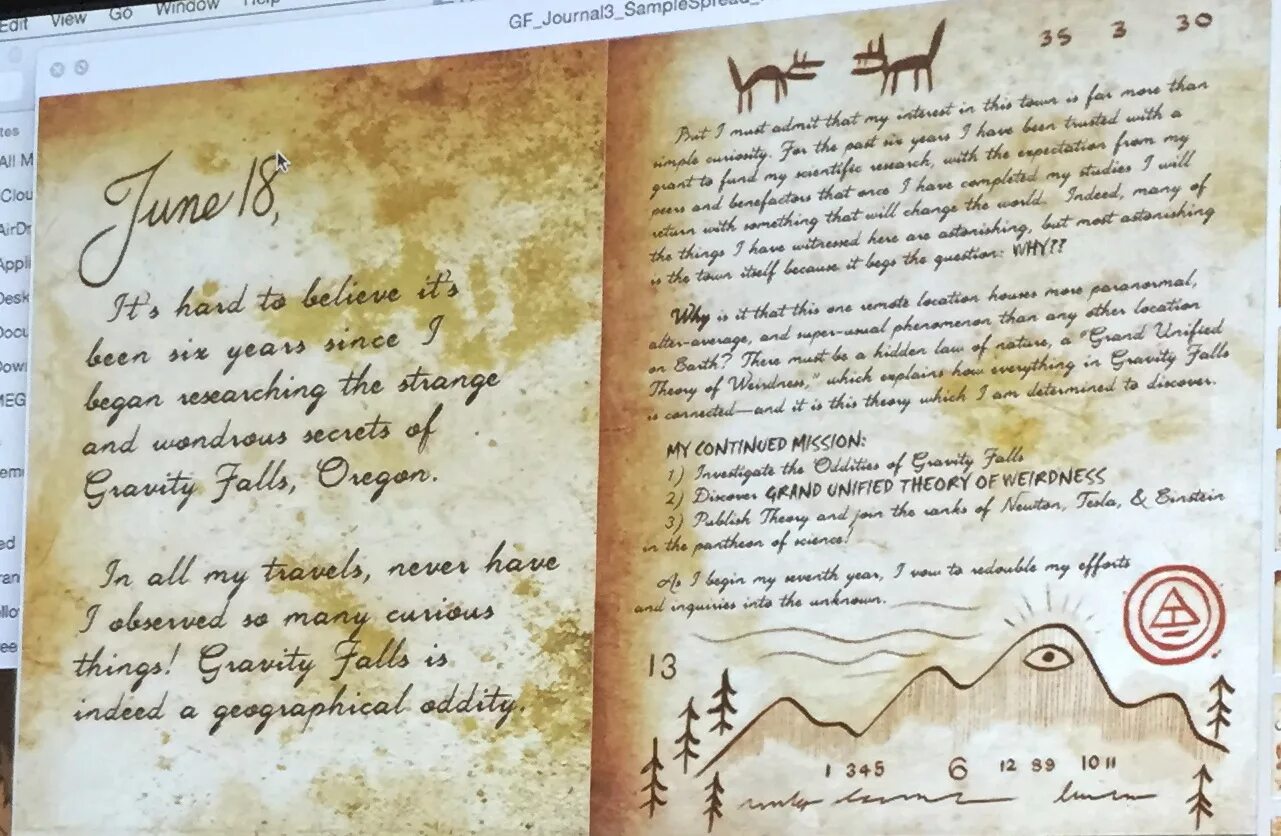 Edit View Go Window Help
GF_Journal3_SampleSpread_
tes
All M
iClou
AirDr
Appli
Desk
Docu
Down
MEG
June 18,
It's hard to believe it's
been six years since I
began researching the strange
and wondrous secrets of
Gravity Falls, Oregon.
In all my travels, never have
I observed so many curious
things! Gravity Falls is
indeed a geographical oddity.
35 3 30
But I must admit that my interest in this town is far more than
simple curiosity. For the past six years I have been trusted with a
grant to fund my scientific research, with the expectation from my
peers and benefactors that once I have completed my studies I will
return with something that will change the world. Indeed, many of
the things I have witnessed here are astonishing, but most astonishing
is the town itself because it begs the question: WHY??
Why is it that this one remote location houses more paranormal,
alter-average, and super-usual phenomenon than any other location
on Earth? There must be a hidden law of nature, a "Grand Unified
Theory of Weirdness," which explains how everything in Gravity Falls
is connected—and it is this theory which I am determined to discover.
MY CONTINUED MISSION:
1) Investigate the Oddities of Gravity Falls
2) Discover GRAND UNIFIED THEORY OF WEIRDNESS
3) Publish Theory and join the ranks of Newton, Tesla, & Einstein
in the pantheon of science!
As I begin my seventh year, I vow to redouble my efforts
and inquiries into the unknown.
13
1 345 6 12 89 10 11